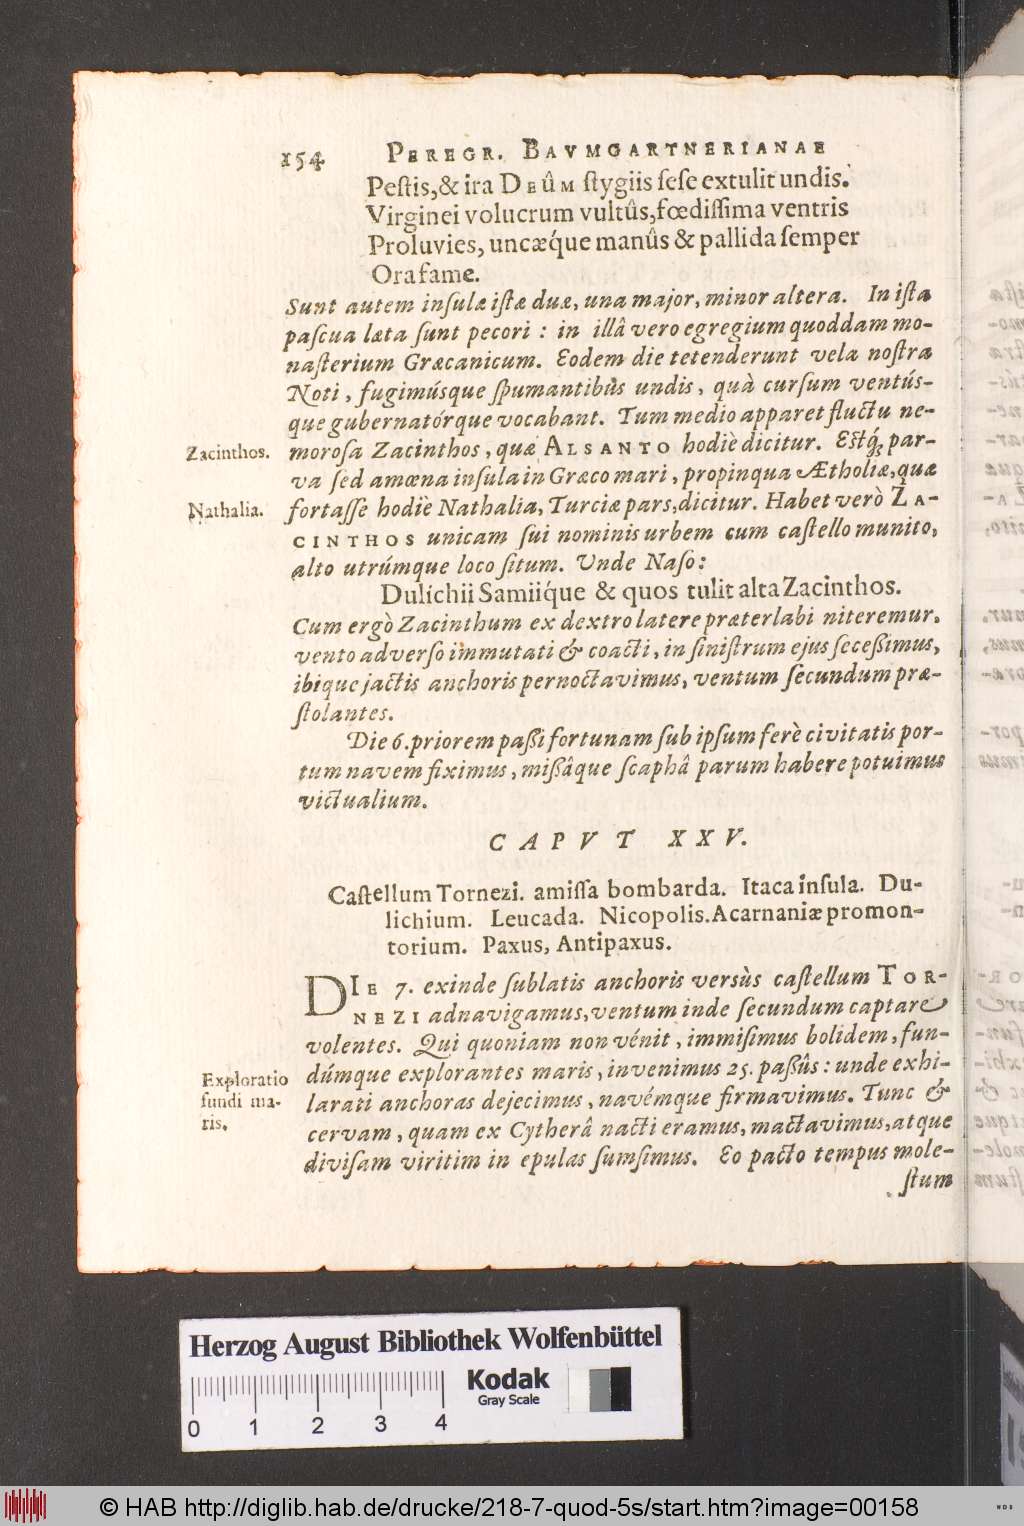 154 PEREGR. BAVMGARTNERIANAE
Pestis, & ira DEÛM stygiis sese extulit undis.
Virginei volucrum vultûs, fœdissima ventris
Proluvies, uncæq́ue manûs & pallida semper
Ora fame.
Sunt autem insulæ istæ duæ, una major, minor altera. In ista
pascua læta sunt pecori: in illâ vero egregium quoddam mo-
nasterium Græcanicum. Eodem die tetenderunt vela nostra
Noti, fugimúsque spumantibùs undis, quà cursum ventús-
que gubernatórque vocabant. Tum medio apparet fluctu ne-
Zacinthos. morosa Zacinthos, quæ ALSANTO hodiè dicitur. Estq́ꝫ par-
va sed amœna insula in Græco mari, propinqua Ætholiæ, quæ
Nathalia. fortasse hodiè Nathalia, Turciæ pars, dicitur. Habet verò ZA-
CINTHOS unicam sui nominis urbem cum castello munito,
alto utrúmque loco situm. Unde Naso:
Dulichii Samiiq́ue & quos tulit alta Zacinthos.
Cum ergò Zacinthum ex dextro latere præterlabi niteremur,
vento adverso immutati & coacti, in sinistrum ejus secessimus,
ibique jactis anchoris pernoctavimus, ventum secundum præ-
stolantes.
Die 6. priorem passi fortunam sub ipsum ferè civitatis por-
tum navem fiximus, missâque scaphâ parum habere potuimus
victualium.
CAPVT XXV.
Castellum Tornezi. amissa bombarda. Itaca insula. Du-
lichium. Leucada. Nicopolis. Acarnaniæ promon-
torium. Paxus, Antipaxus.
DIE 7. exinde sublatis anchoris versùs castellum TOR-
NEZI adnavigamus, ventum inde secundum captare
volentes. Qui quoniam non vénit, immisimus bolidem, fun-
Exploratio dúmque explorantes maris, invenimus 25. passûs: unde exhi-
fundi ma- larati anchoras dejecimus, navémque firmavimus. Tunc &
ris. cervam, quam ex Cytherâ nacti eramus, mactavimus, atque
divisam viritim in epulas sumsimus. Eo pacto tempus mole-
stum
Herzog August Bibliothek Wolfenbüttel
Kodak
Gray Scale
0 1 2 3 4
© HAB http://diglib.hab.de/drucke/218-7-quod-5s/start.htm?image=00158